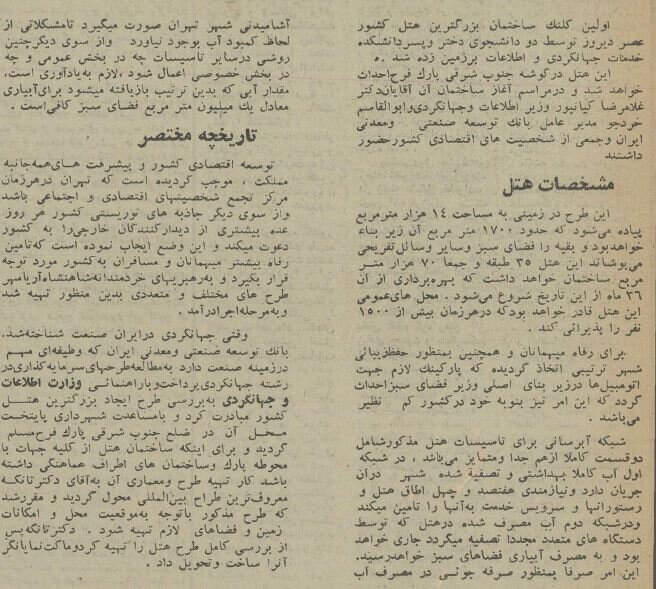 اولین کلنک ساختمان بزرگترین هتل کشور
عصر دیروز توسط دو دانشجوی دختر وپسردانشکده
خدمات جهانگردی و اطلاعات برزمین زده شد .
این هتل درگوشه جنوب شرقی پارك فرح‌احداث
خواهد شد و درمراسم آغاز ساختمان آن آقایان‌دکتر
غلامرضا کیانپور وزیر اطلاعات وجهانگردی‌وابوالقاسم
خردجو مدیر عامل بانك توسعه صنعتی ومعدنی
ایران وجمعی از شخصیت های اقتصادی کشورحضور
داشتند
مشخصات هتل
این طرح در زمینی به مساحت ۱۴ هزار مترمربع
پیاده می‌شود که حدود ۱۷۰۰ متر مربع آن زیر بناء
خواهدبود و بقیه را فضای سبز وسایر وسائل‌تفریحی
می‌پوشاند این هتل ۳۵ طبقه و جمعا ۷۰ هزار متر
مربع ساختمان خواهد داشت که بهره‌برداری از آن
۳۶ ماه از این تاریخ شروع می‌شود . محل های‌عمومی
این هتل قادر خواهد بودکه درهرزمان بیش از ۱۵۰۰
نفر را پذیرائی کند .
برای رفاه میهمانان و همچنین بمنظور حفظزیبائی
شهر ترتیبی اتخاذ گردیده که پارکینك لازم جهت
اتومبیل‌ها درزیر بنای اصلی وزیر فضای سبزاحداث
گردد که این امر نیز بنوبه خود درکشور کم نظیر
می‌باشد .
شبکه آبرسانی برای تاسیسات هتل مذکورشامل
دوقسمت کاملا ازهم جدا ومتمایز می‌باشد ، در شبکه
اول آب کاملا بهداشتی و تصفیه شده شهر درآن
جریان دارد ونیازمندی هفتصد و چهل اطاق هتل و
رستورانها و سرویس خدمت به‌آنها را تامین میکند
ودرشبکه دوم آب مصرف شده درهتل که توسط
دستگاه های متعدد مجددا تصفیه میگردد جاری خواهد
بود و به مصرف آبیاری فضاهای سبز خواهدرسید.
این امر صرفا بمنظور صرفه جوئی در مصرف آب
آشامیدنی شهر تهران صورت میگیرد تامشکلاتی از
لحاظ کمبود آب بوجود نیاورد واز سوی دیگرچنین
روشی درسایر تاسیسات چه در بخش عمومی و چه
در بخش خصوصی اعمال شود ،لازم به‌یادآوری است،
مقدار آبی که بدین ترتیب بازیافته میشود برای‌آبیاری
معادل یك میلیون متر مربع فضای سبز کافی‌است .
تاریخچه مختصر
توسعه اقتصادی کشور و پیشرفت های‌همه‌جانبه
مملکت ، موجب گردیده است که تهران درهرزمان
مرکز تجمع شخصیتهای اقتصادی و اجتماعی باشد
واز سوی دیگر جاذبه های توریستی کشور هر روز
عده بیشتری از دیدارکنندگان خارجی‌را به کشور
دعوت میکند و این وضع ایجاب نموده است که‌تامین
رفاه بیشتر میهمانان و مسافران به‌کشور مورد توجه
قرار بگیرد و به‌رهبریهای خردمندانه‌شاهنشاه‌آریامهر
طرح های مختلف و متعددی بدین منظور تهیه شد
وبه‌مرحله‌اجرادرآمد .
وقتی جهانگردی درایران صنعت شناخته‌شد.
بانك توسعه صنعتی ومعدنی ایران که وظیفه‌ای مهم
درزمینه صنعت دارد به‌مطالعه‌طرحهای‌سرمایه‌گذاری‌در
رشته جهانگردی‌پرداخت‌وباراهنمائی وزارت اطلاعات
و جهانگردی به‌بررسی طرح ایجاد بزرگترین هتل
کشور مبادرت کرد و بامساعدت شهرداری پایتخت
محل آن در ضلع جنوب شرقی پارك فرح‌مسلم
گردید و برای اینکه ساختمان هتل از کلیه جهات با
محوطه پارك وساختمان های اطراف هماهنگی داشته
باشد کار تهیه طرح ومعماری آن به‌آقای دکترتانگه
معروف‌ترین طراح بین‌المللی محول گردید و مقررشد
که طرح مذکور باتوجه به‌موقعیت محل و امکانات
زمین و فضاهای لازم تهیه شود . دکترتانگه‌پس
از بررسی کامل طرح هتل را تهیه کردوماکت‌نمایانگر
آنرا ساخت وتحویل داد .